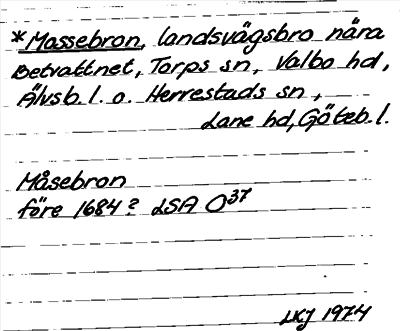 *Massebron, landsvägsbro nära
Betvattnet, Torps sn, Valbo hd,
Älvsb. l. o. Herrestads sn,
Lane hd, Göteb. l.
Måsebron
före 1684? LSA O37
LKJ 1974